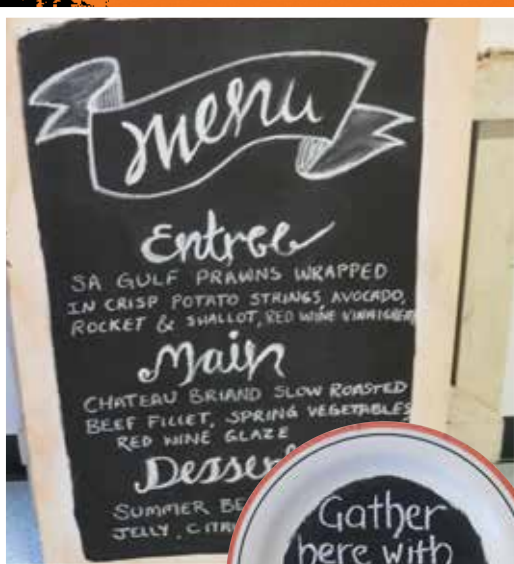 menu
Entree
SA GULF PRAWNS WRAPPED
IN CRISP POTATO STRINGS, AVOCADO,
ROCKET & SHALLOT, RED WINE
Main
CHATEAU BRIAND SLOW ROASTED
BEEF FILLET, SPRING VEGETABLES
RED WINE GLAZE
SUMMER
JELLY,
Gather
here with